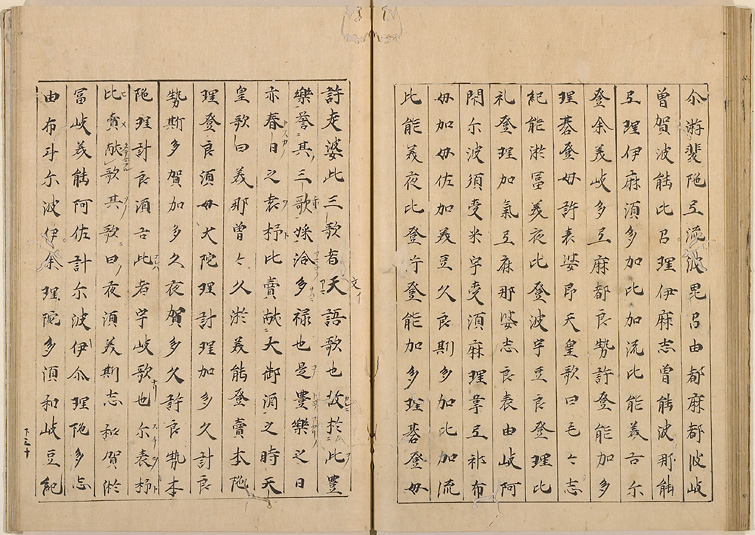 尓游斐陁弖流波毘呂由都麻都波岐
曽賀波能比呂理伊麻志曽能波那能
弖理伊麻須多加比加流比能美古尓
登余美岐多弖麻都良勢許登能加多
理碁登母許袁婆即天皇歌曰毛々志
紀能淤冨美夜比登波宇豆良登理比
礼登理加氣弖麻那婆志良袁由岐阿
閇尓波須受米宇受須麻理韋弖祁布
母加母佐加美豆久良斯多加比加流
比能美夜比登許登能加多理碁登母
許袁婆此三歌者天語歌也故於此豊
樂誉其三歌婇給多禄也是豊樂之日
亦春日之袁杼比賣献大御酒之時天
皇歌曰美那曽々久淤美能登賣本陁
理登良須母大陀理討理加多久討良
勢斯多賀加多久夜賀多久許良勢本
陁理討良須古此者宇岐歌也尓袁杼
比賣献歌其歌曰夜須美斯志和賀淤
冨岐美能阿佐計尓波伊尒理陁多志
由布斗尓波伊余理陀多須和岐豆紀
下三十